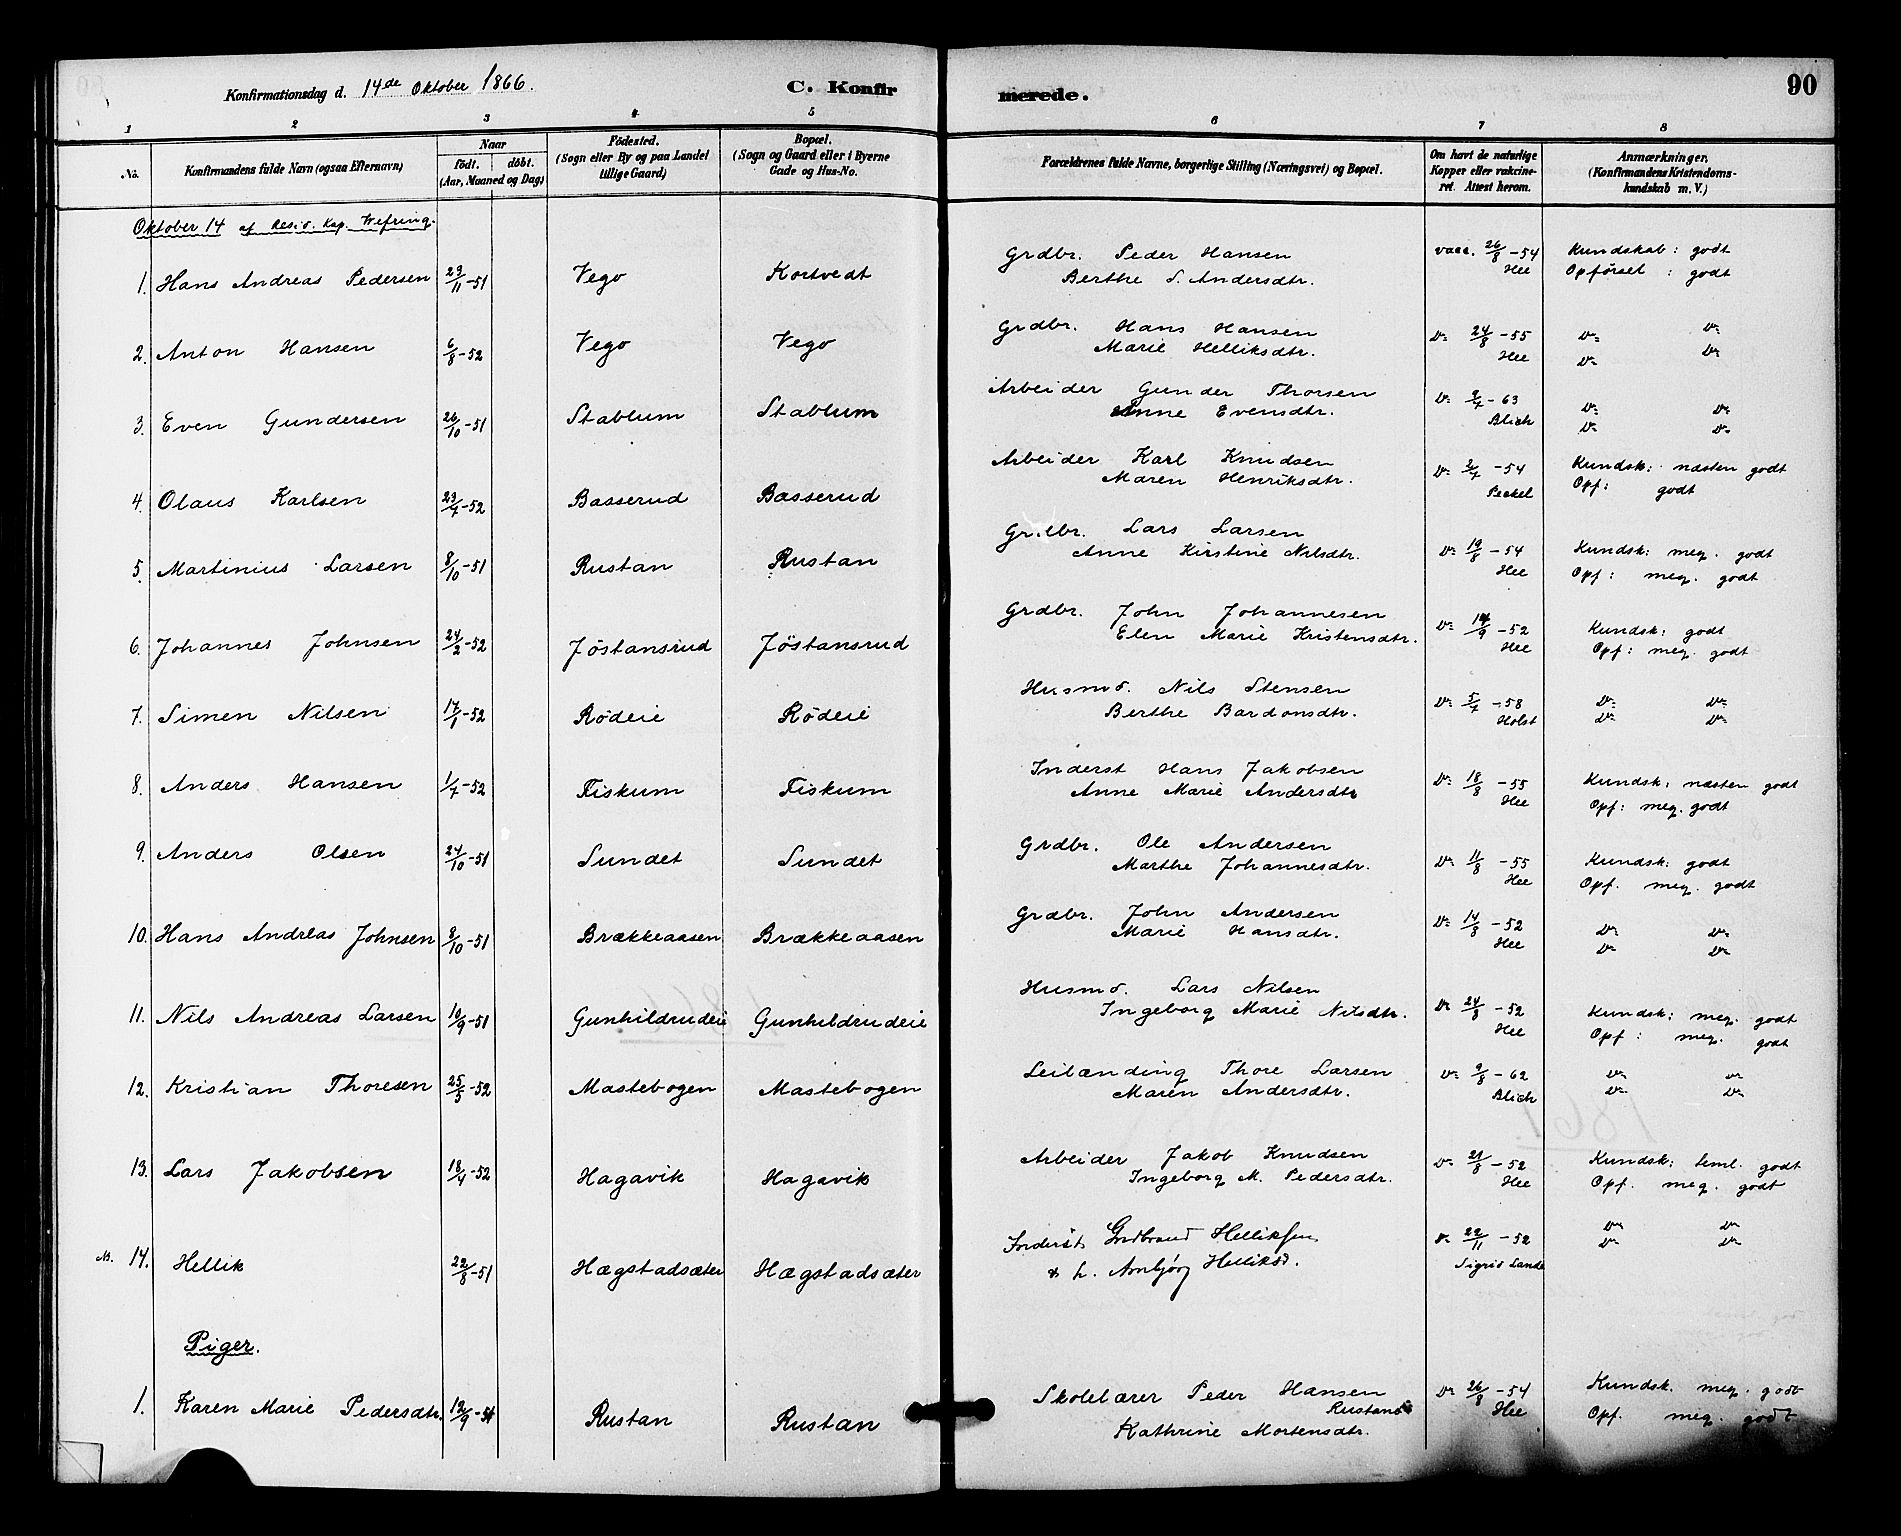 90
Konfirmationsdag d. 14de Oktober 1866.
C. Konfirmerede.
1 2 3 4 5 6 7 8
No.
Konfirmandens fulde Navn (ogsaa Efternavn)
Naar
födt. döbt.
(Aar, Maaned og Dag)
Födested.
(Sogn eller By og paa Landet
tillige Gaard)
Bopæl.
(Sogn og Gaard eller i Byerne
Gade og Hus-No.
Forældrenes fulde Navne, borgerlige Stilling (Næringsvei) og Bopæl.
Om havt de naturlige
Kopper eller vakcine-
ret. Attest herom.
Anmærkninger.
(Konfirmandens Kristendoms-
kundskab m. V.)
Oktober 14 af Resid. Kap. Wefring.
1. Hans Andreas Pedersen 23/11-51 Vego Kortvedt Grdbr. Peder Hansen vacc. 26/8-54 Kundskab: godt
Berthe S. Andersdtr. Hee Opførsel: godt
2. Anton Hansen 6/8-52 Vego Vego Grdbr. Hans Hansen D: 24/8-55 D: D:
Marie Helliksdtr. Hee D: D:
3. Even Gundersen 26/10-51 Stablum Stablum Arbeider Gunder Thorsen D: 2/7-63 D: D:
Anne Evensdtr. Blich D: D:
4. Olaus Karlsen 23/7-52 Basserud Basserud Arbeider Karl Knudsen D: 2/7-54 Kundsk: næsten godt
Maren Henriksdtr. Peckel Opf: godt
5. Martinius Larsen 8/10-51 Rustan Rustan Grdbr. Lars Larsen D: 19/8-54 Kundsk: meg. godt
Anne Kirstine Nilsdtr. Hee Opf: meg. godt
6. Johannes Johnsen 24/2-52 Jøstansrud Jøstansrud Grdbr. John Johannesen D: 14/9-52 Kundsk: godt
Elen Marie Kristensdtr. Hee Opf: meg. godt
7. Simen Nilsen 17/1-52 Rödeie Rödeie Husmd. Nils Stensen D: 5/7-58 D: D:
Berthe Bardonsdtr. Holst D: D:
8. Anders Hansen 1/7-52 Fiskum Fiskum Inderst Hans Jakobsen D: 18/8-55 Kundsk: næsten godt
Anne Marie Andersdtr Hee Opf: meg. godt
9. Anders Olsen 24/10-51 Sundet Sundet Grdbr. Ole Andersen D: 11/8-55 Kundsk: godt
Marthe Johannesdtr. Hee Opf. meg. godt
10. Hans Andreas Johnsen 8/10-51 Brækkeaasen Brækkeaasen Grdbr. John Andersen D: 14/8-52 D: D:
Marie Hansdtr. Hee D: D:
11. Nils Andreas Larsen 10/9-51 Gunhildrudeie Gunhildrudeie Husmd. Lars Nilsen D: 24/8-52 Kundsk: meg. godt
Ingeborg Marie Nilsdtr. Hee Opf: meg. godt
12. Kristian Thoresen 25/5-52 Mastebogen Mastebogen Leilænding Thore Larsen D: 9/8-62 D: D:
Maren Andersdtr. Blich D: D:
13. Lars Jakobsen 18/4-52 Hagavik Hagavik Arbeider Jakob Knudsen D: 21/8-52 Kundsk: teml. godt
Ingeborg M. Pedersdtr. Hee Opf. meg. godt
No. 14. Hellik 22/8-51 Hægstadsæter Hægstadsæter Inderst Gudbrand Helliksen D: 22/11-52 D: D:
& h. Arnbjørg Helliksd. Sigrid Lande D: D:
Piger.
1. Karen Marie Pedersdtr. 12/9-51 Rustan Rustan Skolelærer Peder Hansen D: 26/8-54 Kundsk. meg. godt
Rustand Hee Opf. meg. godt
Kathrine Mortensdtr.